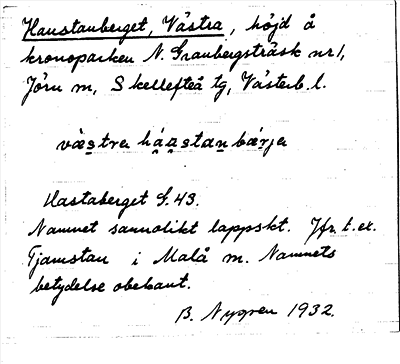 Haustanberget, Västra, höjd å
kronoparken N. Granbergsträsk nr 1,
Jörn sn, Skellefteå tg, Västerb. l.
västra háastan bærja
Hastaberget G. 43.
Namnet sannolikt lappskt. Jfr t. ex.
Tjamstan i Malå sn. Namnets
betydelse obekant.
B. Nygren 1932.